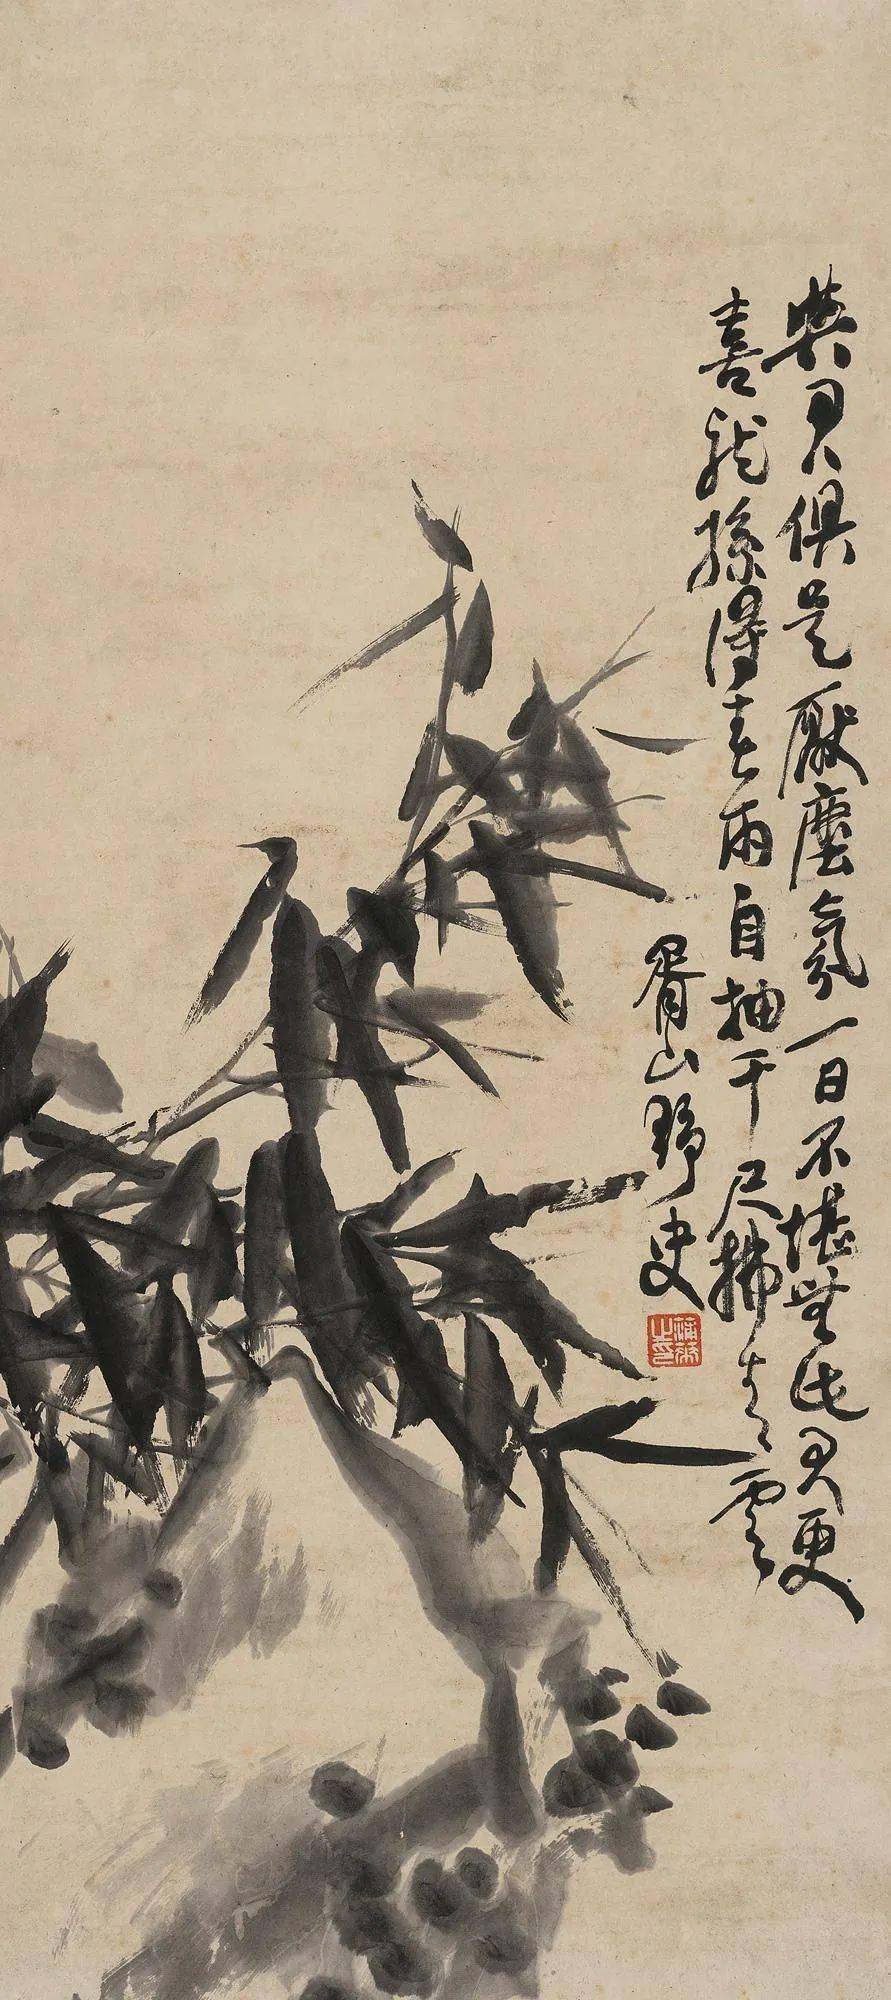 與君俱是厭塵氛一日不堪無此君更
喜龍孫得春雨自抽千尺拂青雲
胥山野史
蒲華之印